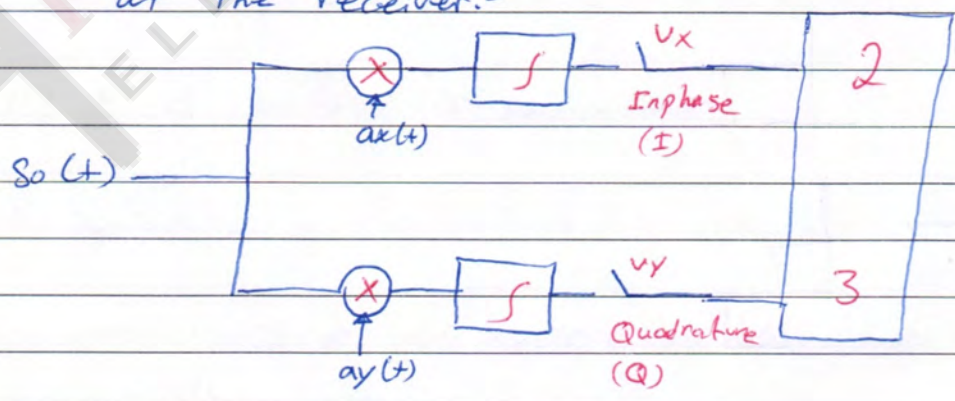 at the receiver.
ax(t)
Vx
Inphase
(I)
2
So (t)
ay(t)
Vy
Quadrature
(Q)
3